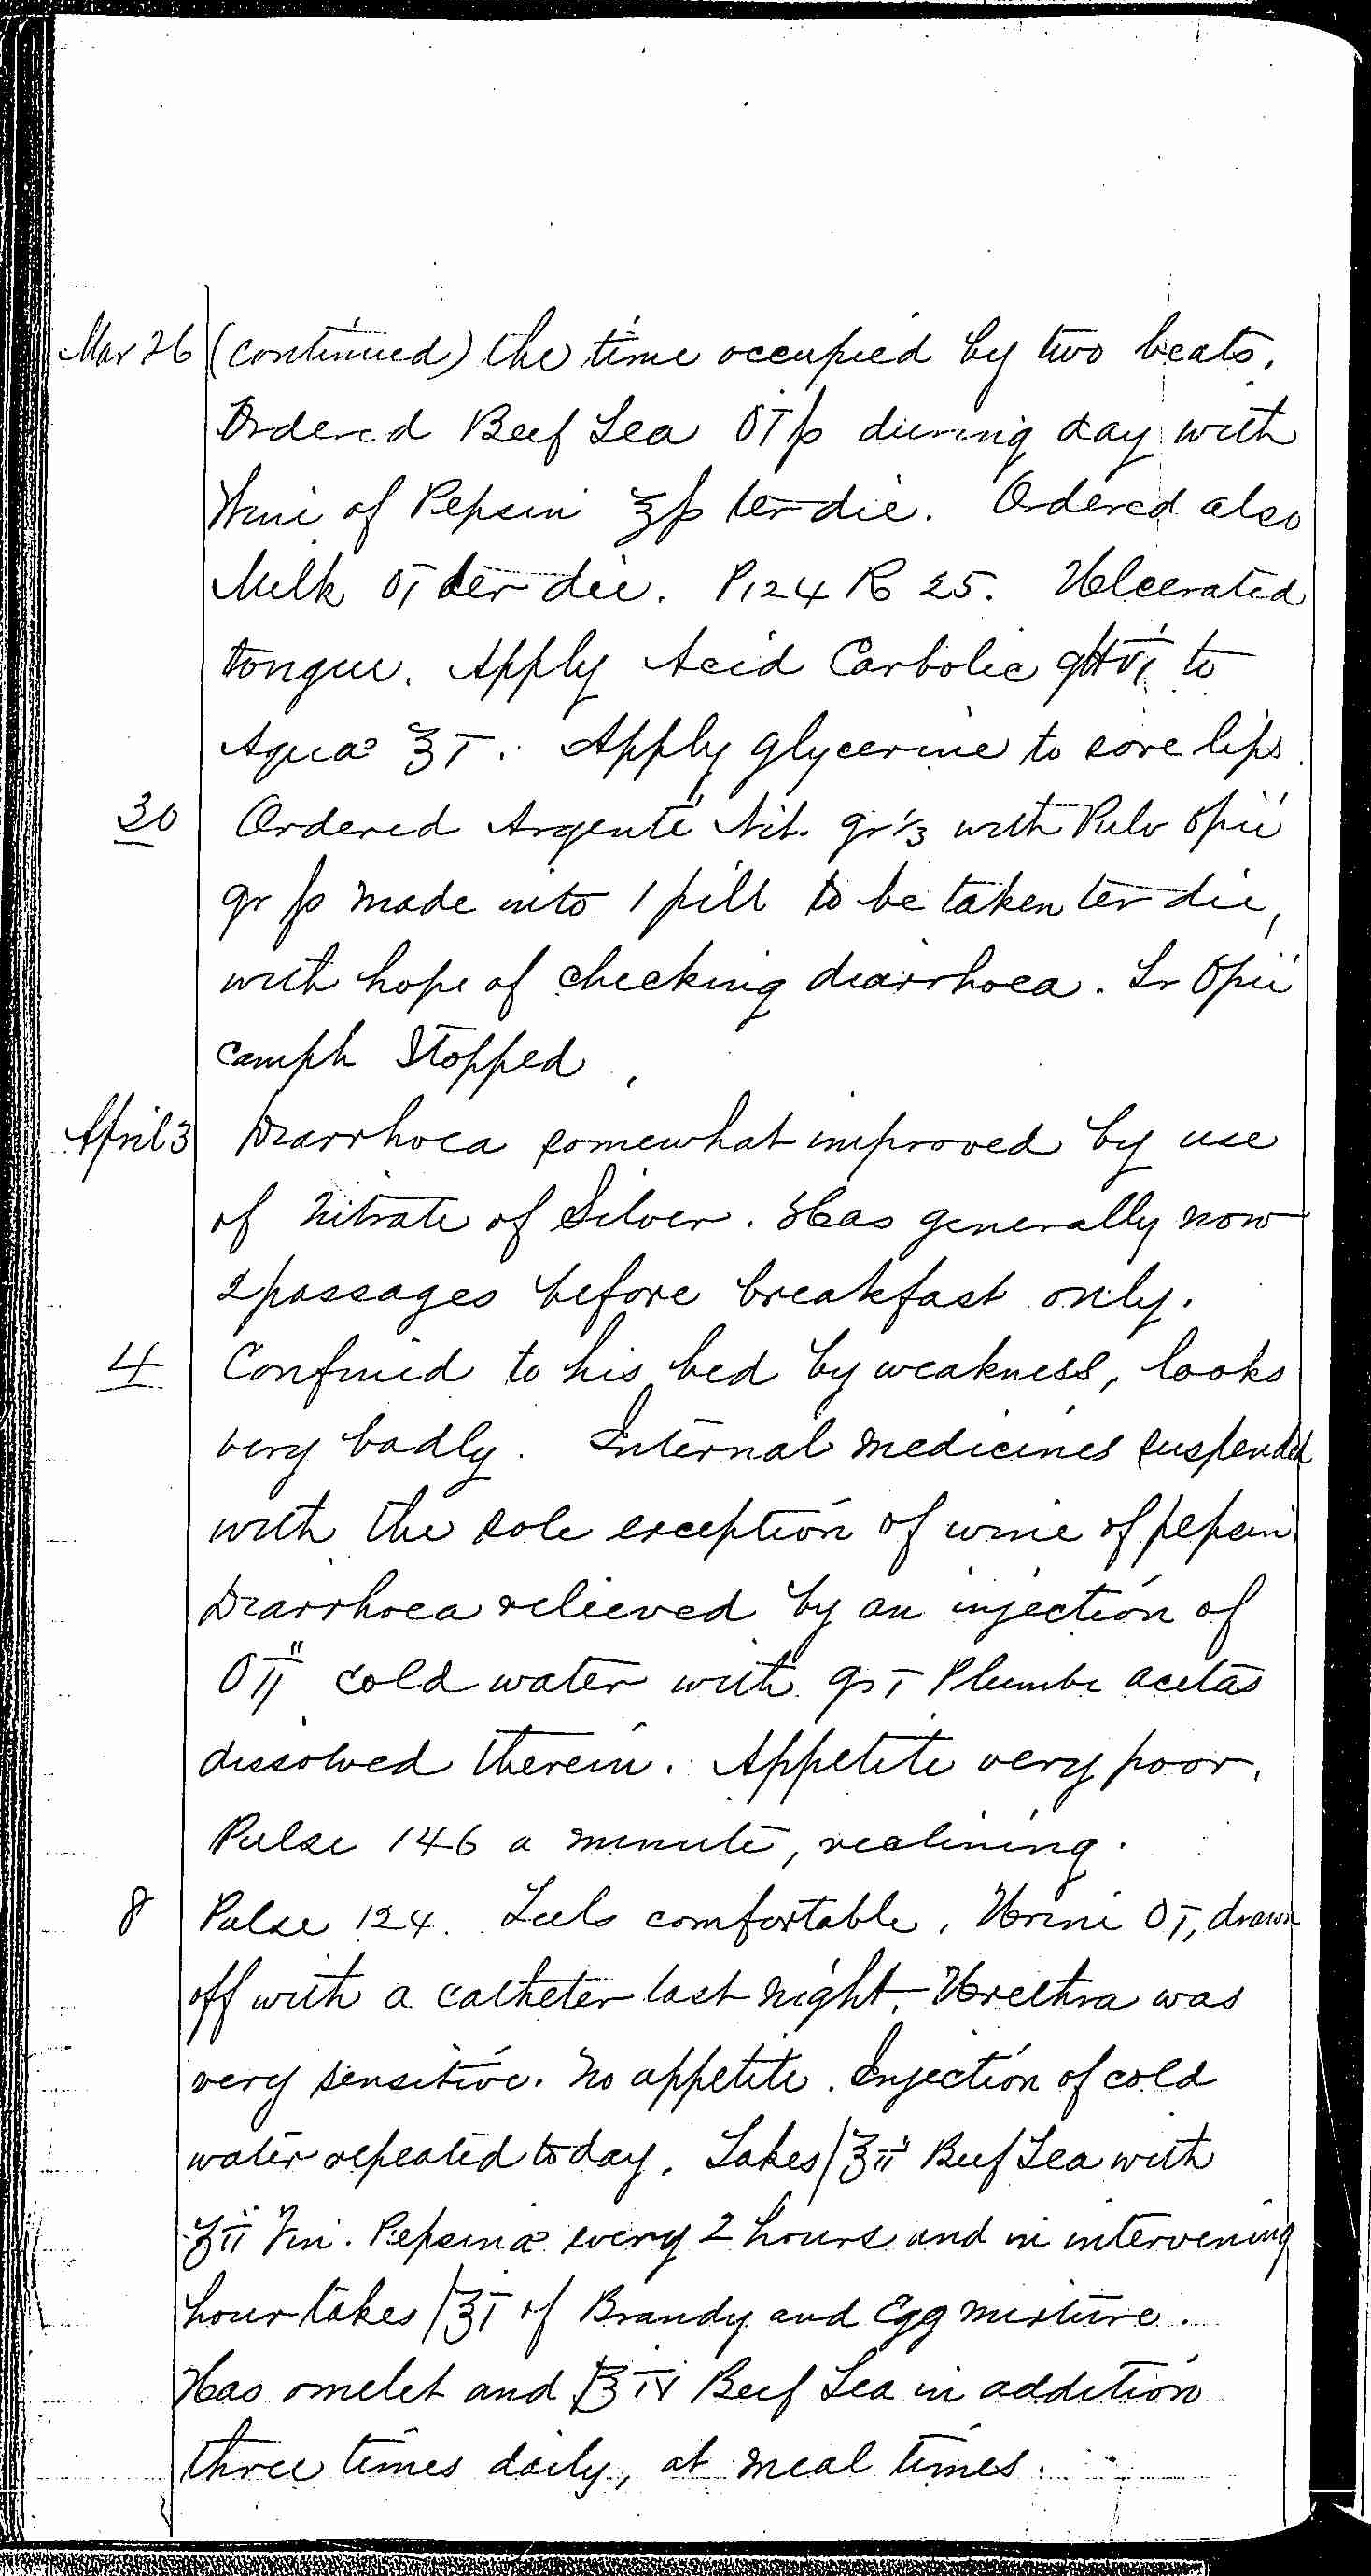 Mar 26 (continued) the time occupied by two beats.
Ordered Beef Tea Oi ss during day with
Wine of Pepsin ℥ss ter die. Ordered also
Milk Oi ter die. P 124 R 25. Ulcerated
tongue. Apply Acid Carbolic gtt vi to
Aqua ℥i. Apply glycerine to sore lips.
30 Ordered Argenti Nit. gr 1/3 with Pulv Opii
gr ss made into 1 pill to be taken ter die,
with hope of checking diarrhoea. Tr Opii
camph Stopped.
April 3 Diarrhoea somewhat improved by use
of Nitrate of Silver. Has generally now
2 passages before breakfast only.
4 Confined to his bed by weakness, looks
very badly. Internal medicines suspended
with the sole exception of wine of pepsin.
Diarrhoea relieved by an injection of
Oii cold water with gr i Plumbi acetas
dissolved therein. Appetite very poor.
Pulse 146 a minute, reclining.
8 Pulse 124. Feels comfortable. Urine Oi, drawn
off with a catheter last night. Urethra was
very sensitive. No appetite. Injection of cold
water repeated today. Takes ℥ii Beef Tea with
ʒii Vin. Pepsinae every 2 hours and in intervening
hour takes ℥i of Brandy and Egg mixture.
Has omelet and ℥iv Beef Tea in addition
three times daily, at meal times.